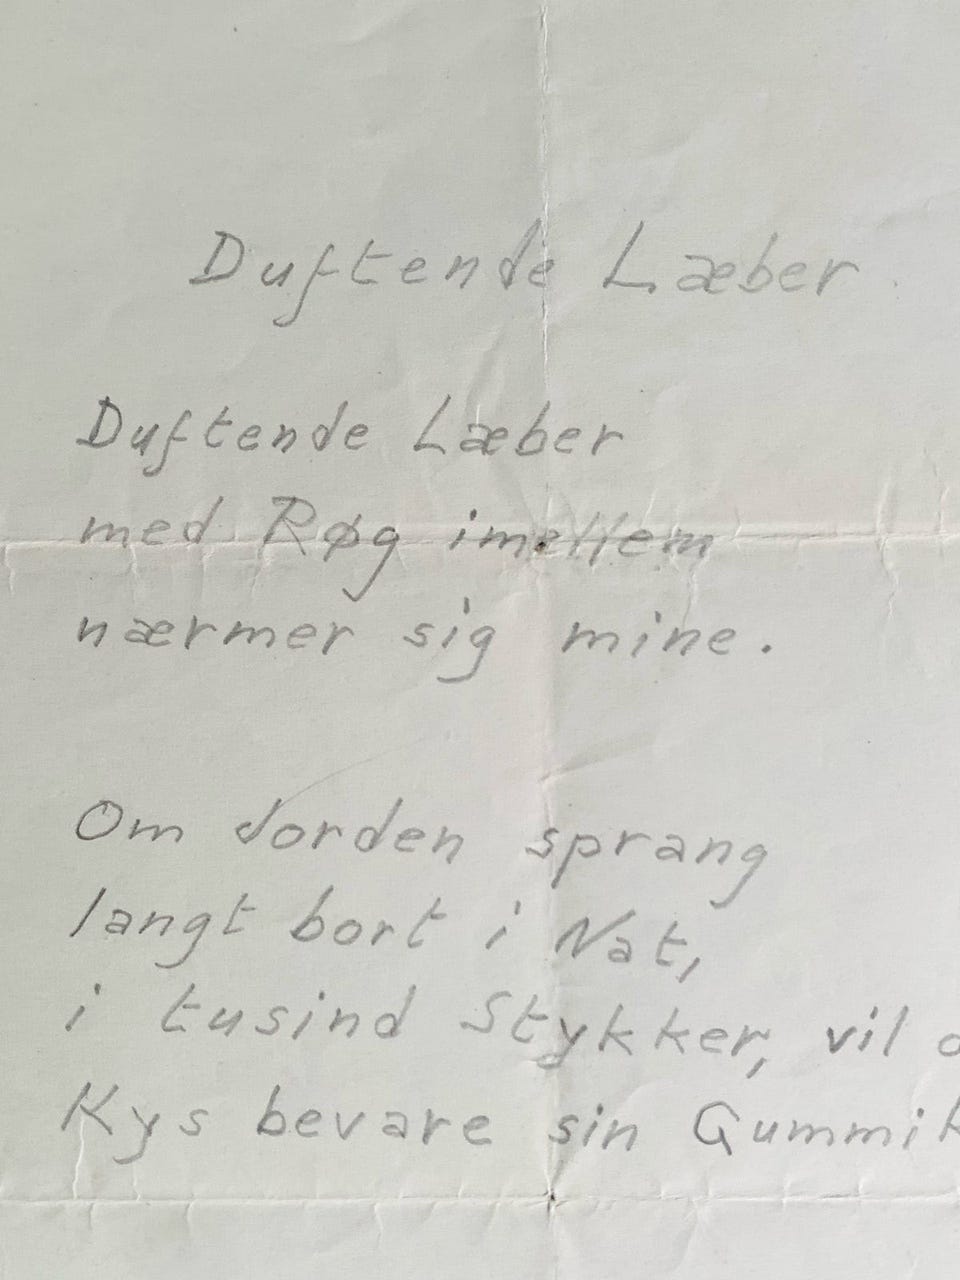 Duftende Læber
Duftende Læber
med Røg imellem
nærmer sig mine.
Om Jorden sprang
langt bort i Nat,
i tusind Stykker, vil
Kys bevare sin